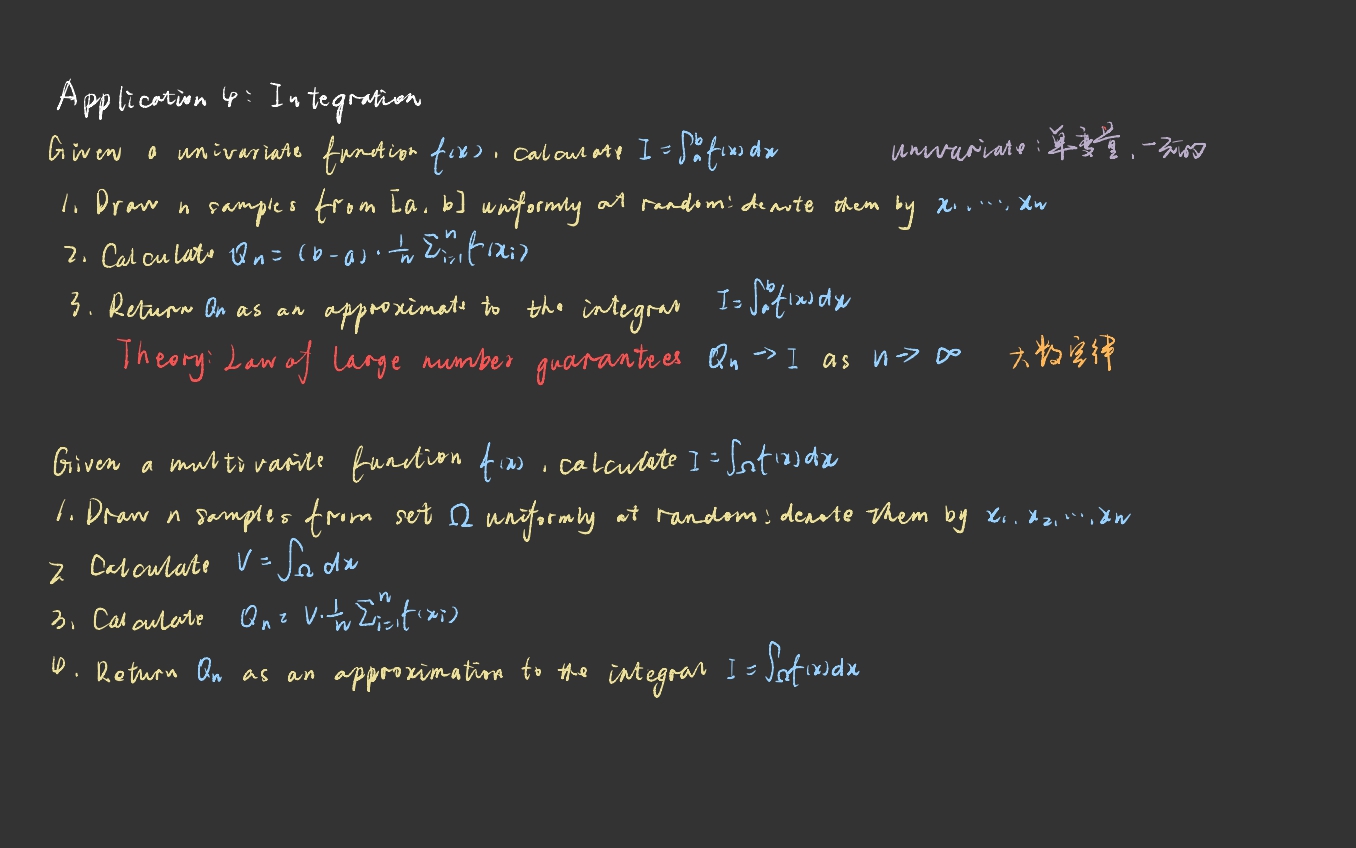 Application 4: Integration
Given a univariate function f(x), calculate I = ∫ₐᵇ f(x) dx univariate: 单变量, 一元的
1. Draw n samples from [a, b] uniformly at random: denote them by x₁, ..., xₙ
2. Calculate Qₙ = (b-a) · 1/n Σᵢ₌₁ⁿ f(xᵢ)
3. Return Qₙ as an approximate to the integral I = ∫ₐᵇ f(x) dx
Theory: Law of large number guarantees Qₙ → I as n → ∞ 大数定律
Given a multivarite function f(x), calculate I = ∫_Ω f(x) dx
1. Draw n samples from set Ω uniformly at random: denote them by x₁, x₂, ..., xₙ
2 Calculate V = ∫_Ω dx
3. Calculate Qₙ = V · 1/n Σᵢ₌₁ⁿ f(xᵢ)
4. Return Qₙ as an approximation to the integral I = ∫_Ω f(x) dx